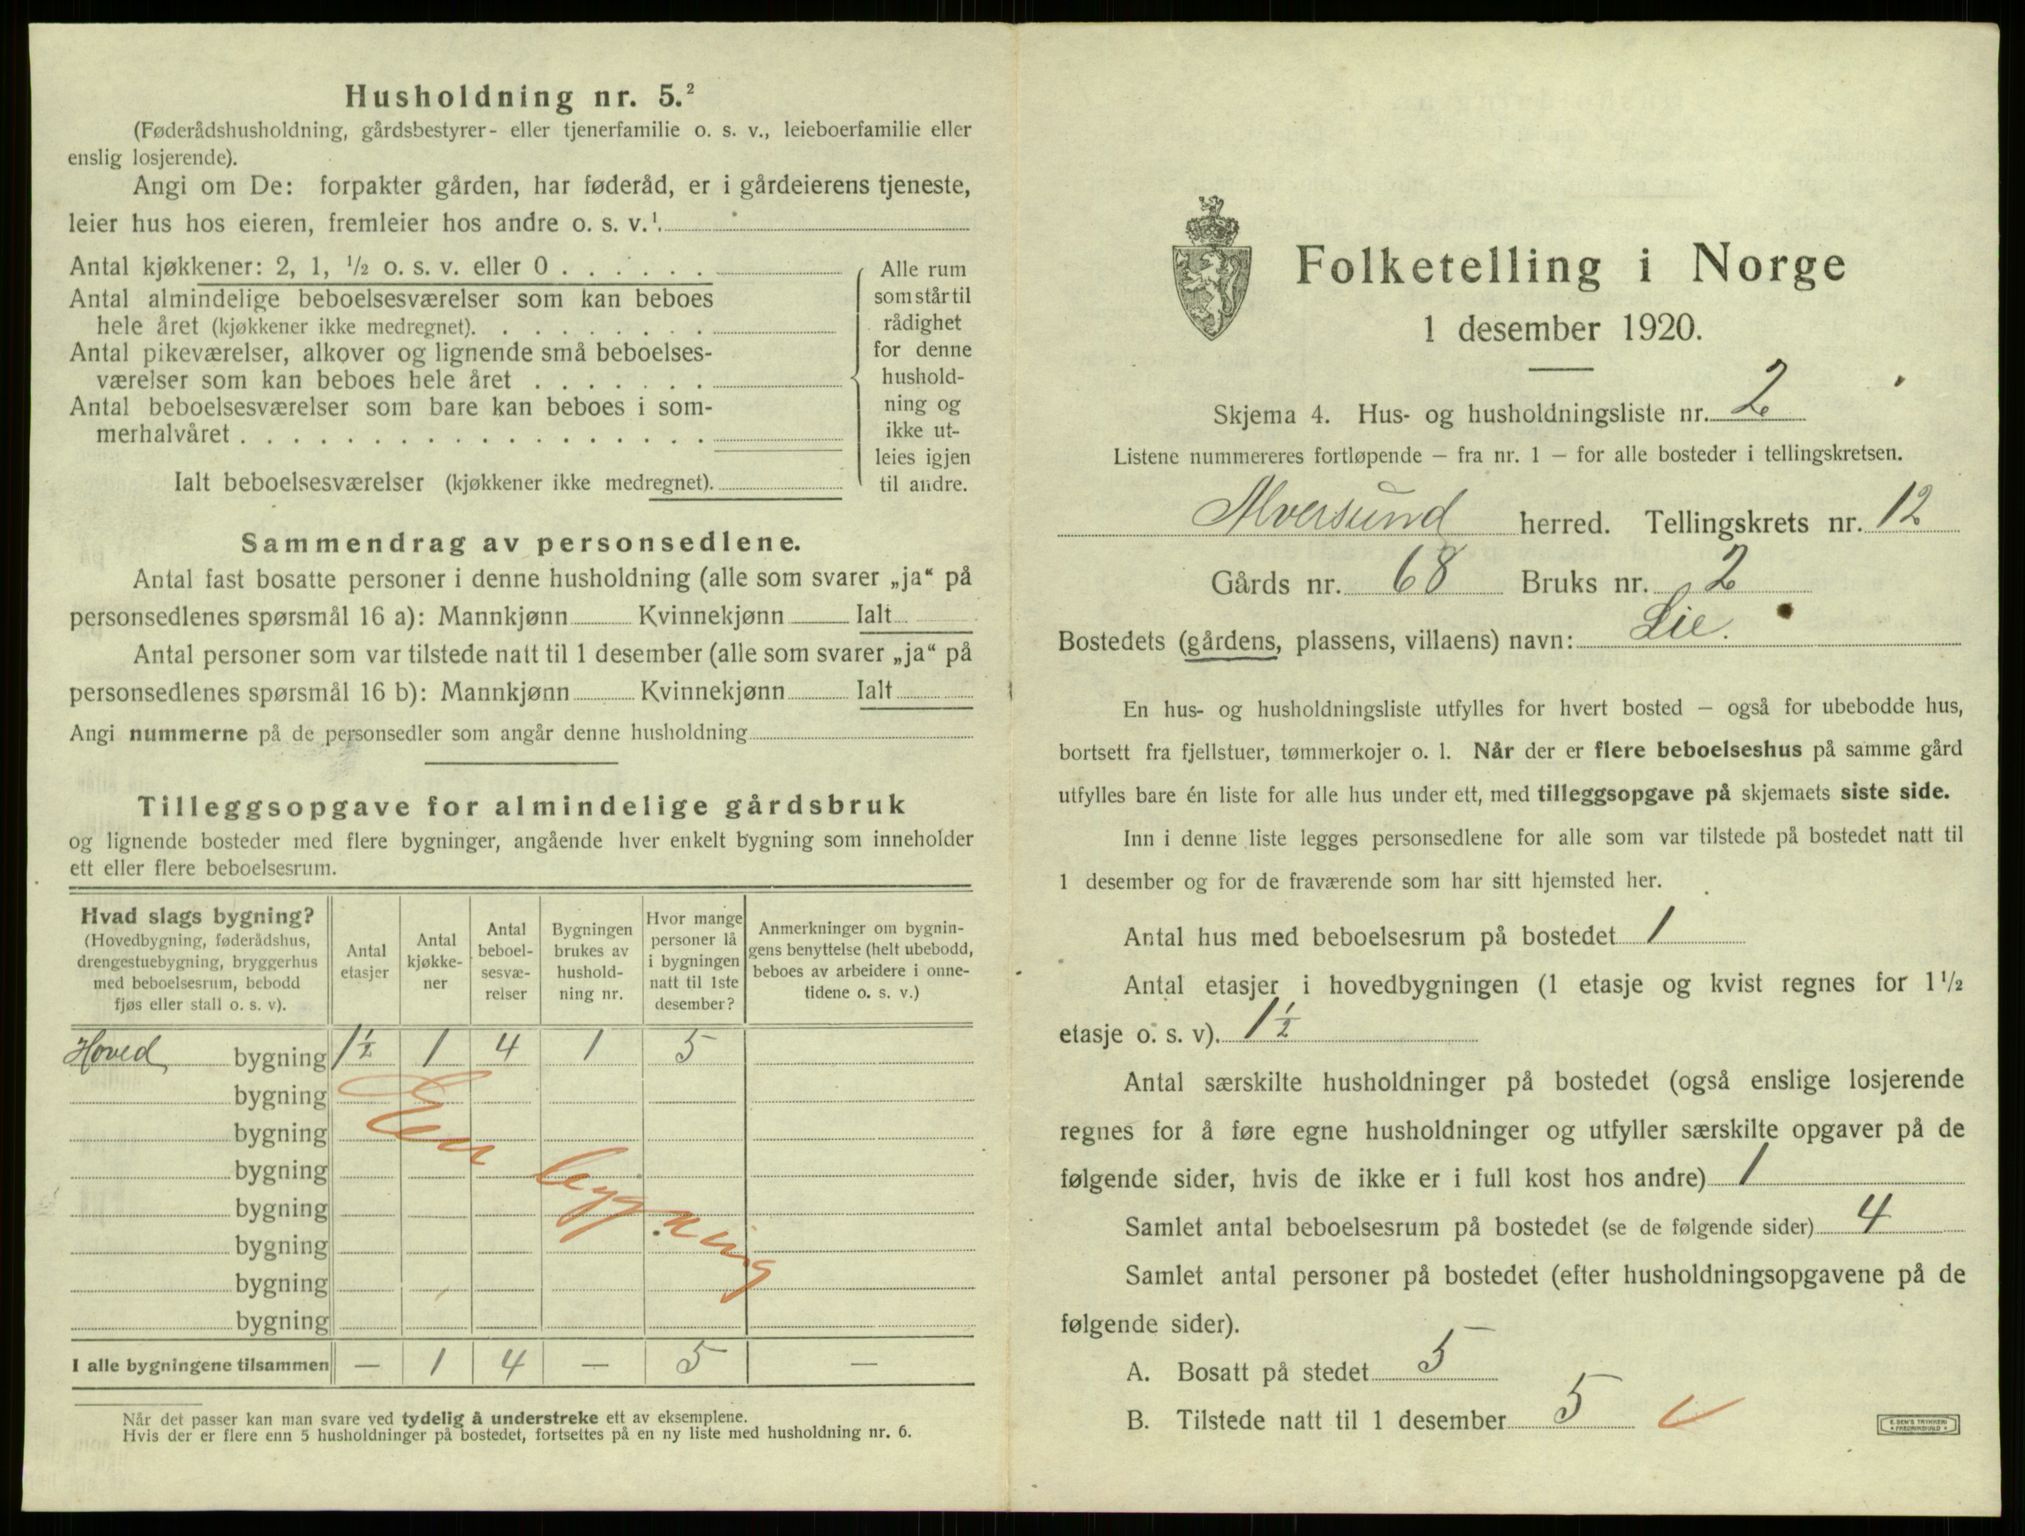 Husholdning nr. 5.²
(Føderådshusholdning, gårdsbestyrer- eller tjenerfamilie o. s. v., leieboerfamilie eller
enslig losjerende).
Angi om De: forpakter gården, har føderåd, er i gårdeierens tjeneste,
leier hus hos eieren, fremleier hos andre o. s. v.¹
Antal kjøkkener: 2, 1, ½ o. s. v. eller 0 . . . . . .
Antal almindelige beboelsesværelser som kan beboes
hele året (kjøkkener ikke medregnet). . . . . . . . .
Antal pikeværelser, alkover og lignende små beboelses-
værelser som kan beboes hele året . . . . . . .
Antal beboelsesværelser som bare kan beboes i som-
merhalvåret . . . . . . . . . . . . . . . . . .
Ialt beboelsesværelser (kjøkkener ikke medregnet).
Alle rum
som står til
rådighet
for denne
hushold-
ning og
ikke ut-
leies igjen
til andre.
Sammendrag av personsedlene.
Antal fast bosatte personer i denne husholdning (alle som svarer „ja“ på
personsedlenes spørsmål 16 a): Mannkjønn Kvinnekjønn Ialt
Antal personer som var tilstede natt til 1 desember (alle som svarer „ja“ på
personsedlenes spørsmål 16 b): Mannkjønn Kvinnekjønn Ialt
Angi nummerne på de personsedler som angår denne husholdning
Tilleggsopgave for almindelige gårdsbruk
og lignende bosteder med flere bygninger, angående hver enkelt bygning som inneholder
ett eller flere beboelsesrum.
Hvad slags bygning?
(Hovedbygning, føderådshus,
drengestuebygning, bryggerhus
med beboelsesrum, bebodd
fjøs eller stall o. s. v).
Antal
etasjer
Antal
kjøkke-
ner
Antal
beboel-
sesvæ-
relser
Bygningen
brukes av
hushold-
ning nr.
Hvor mange
personer lå
i bygningen
natt til 1ste
desember?
Anmerkninger om bygnin-
gens benyttelse (helt ubebodd,
beboes av arbeidere i onne-
tidene o. s. v.)
Hoved bygning 1½ 1 4 1 5
bygning
bygning
bygning
bygning
bygning
bygning
bygning
Een bygning
I alle bygningene tilsammen — 1 4 — 5 —
Når det passer kan man svare ved tydelig å understreke ett av eksemplene.
Hvis der er flere enn 5 husholdninger på bostedet, fortsettes på en ny liste med husholdning nr. 6.
Folketelling i Norge
1 desember 1920.
Skjema 4. Hus- og husholdningsliste nr. 2
Listene nummereres fortløpende – fra nr. 1 – for alle bosteder i tellingskretsen.
Alversund herred. Tellingskrets nr. 12
Gårds nr. 68 Bruks nr. 2
Bostedets (gårdens, plassens, villaens) navn: Lie.
En hus- og husholdningsliste utfylles for hvert bosted – også for ubebodde hus,
bortsett fra fjellstuer, tømmerkojer o. l. Når der er flere beboelseshus på samme gård
utfylles bare én liste for alle hus under ett, med tilleggsopgave på skjemaets siste side.
Inn i denne liste legges personsedlene for alle som var tilstede på bostedet natt til
1 desember og for de fraværende som har sitt hjemsted her.
Antal hus med beboelsesrum på bostedet 1
Antal etasjer i hovedbygningen (1 etasje og kvist regnes for 1½
etasje o. s. v). 1½
Antal særskilte husholdninger på bostedet (også enslige losjerende
regnes for å føre egne husholdninger og utfyller særskilte opgaver på de
følgende sider, hvis de ikke er i full kost hos andre) 1
Samlet antal beboelsesrum på bostedet (se de følgende sider) 4
Samlet antal personer på bostedet (efter husholdningsopgavene på de
følgende sider).
A. Bosatt på stedet 5
B. Tilstede natt til 1 desember 5